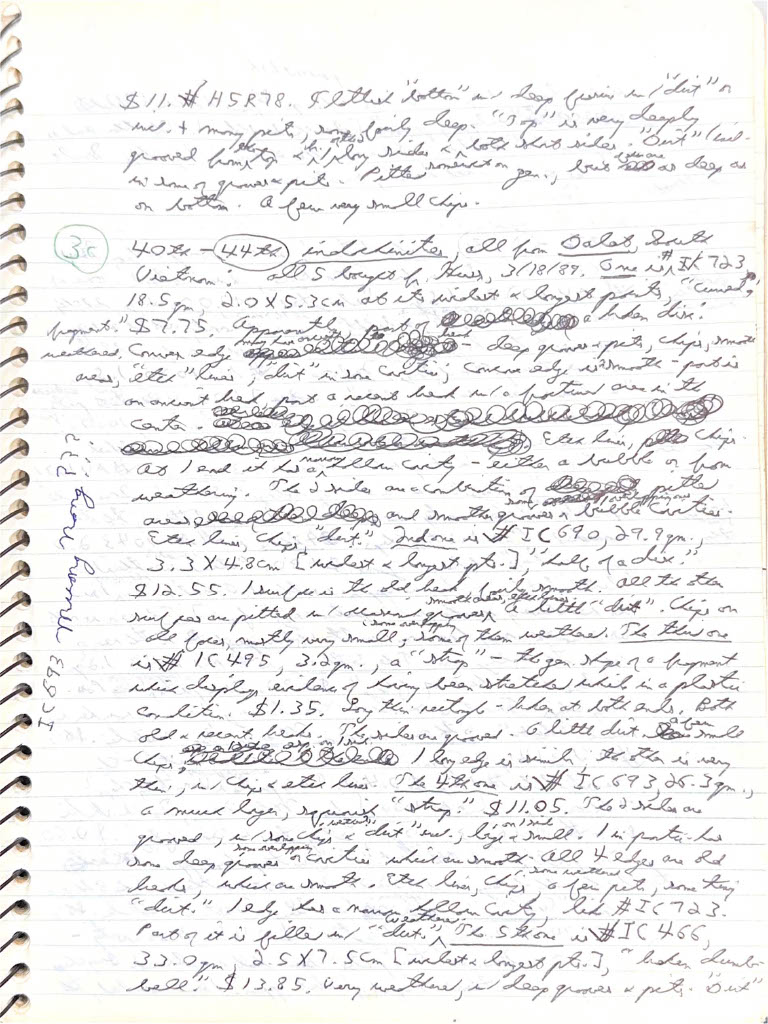 $11. # HSR78. Flattish "bottom" w/ deep furrow w/ "dirt" on
incl. & many pits, some fairly deep. "Top" is very deeply
grooved from top & along sides & both short sides. "Dirt" (incl.
in some of grooves & pits. Pitted somewhat on gen., but as deep as
on bottom. A few very small chips.
3c
40th - 44th indochinites, all from Dalat, South
Vietnam: all 5 bought fr. 3/18/89. One is # IC 723,
18.5 gm, 2.0 X 5.3 cm at its widest & longest points, "curved
fragment." $7.75. Apparently part of a broken disk.
weathered. Convex edge - deep grooves & pits, chips, smooth
areas, "etch" lines, "dirt" in some cavities, concave edge is smooth - part is
an ancient break, part a recent break w/ a area in the
center.
Etch lines, chips.
At 1 end it has a narrow hollow cavity - either a bubble or from
weathering. The 2 sides are a combination of pitted
areas and smooth grooves & bubble cavities.
Etch lines, chips, "dirt." 2nd one is # IC 690, 29.9 gm.,
3.3 X 4.8 cm [widest & longest pts.], "half of a disk."
$12.55. 1 surface is the old break, fairly smooth. All the other
surfaces are pitted w/ occasional grooves, a little "dirt". Chips on
all faces, mostly very small, some of them weathered. The third one
is # IC 495, 3.2 gm., a "strap" - the gen. shape of a fragment
which displays evidence of having been stretched while in a plastic
condition. $1.35. Long thin rectangle - broken at both ends. Both
old & recent breaks. The sides are grooved. A little dirt. a few small
chips, 1 long edge is similar the other is very
thin, w/ chips & etch lines. The 4th one is # IC 693, 26.3 gm.,
a much larger, squarish "strap." $11.05. The 2 sides are
grooved, w/ some chips & "dirt" incl., large & small. 1 in particular has
some deep grooves or cavities which are smooth. All 4 edges are old
breaks, which are smooth. Etch lines, chips, a few pits, some tiny
"dirt." 1 edge has a narrow hollow cavity, like # IC 723.
Part of it is filled w/ "dirt." The 5th one is # IC 466,
33.0 gm, 2.5 X 7.5 cm [widest & longest pts.], "broken dumb-
bell." $13.85. Very weathered, w/ deep grooves & pits. "Dirt"
IC693